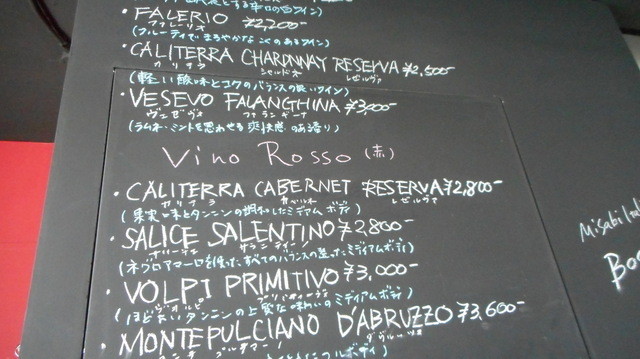 ・FALERIO ¥2,200-
(フルーティでまろやかなコクのあるワイン)
・CALITERRA CHARDONNAY RESERVA ¥2,500-
カリテラ シャルドネ レゼルヴァ
(軽い酸味とコクのバランスの良いワイン)
・VESEVO FALANGHINA ¥3,000-
ヴェゼヴォ ファランギーナ
(ラムネ・ミントを思わせる爽快感のある香り)
Vino Rosso (赤)
・CALITERRA CABERNET RESERVA ¥2,800-
カリテラ カベルネ レゼルヴァ
(果実味とタンニンの調和したミディアムボディ)
・SALICE SALENTINO ¥2,800-
(ネグロアマーロを使ったすべてのバランスの整ったミディアムボディ)
・VOLPI PRIMITIVO ¥3,000-
(ほど良いタンニンの上質な味わいのミディアムボディ)
・MONTEPULCIANO D'ABRUZZO ¥3,600-
フルボディ)